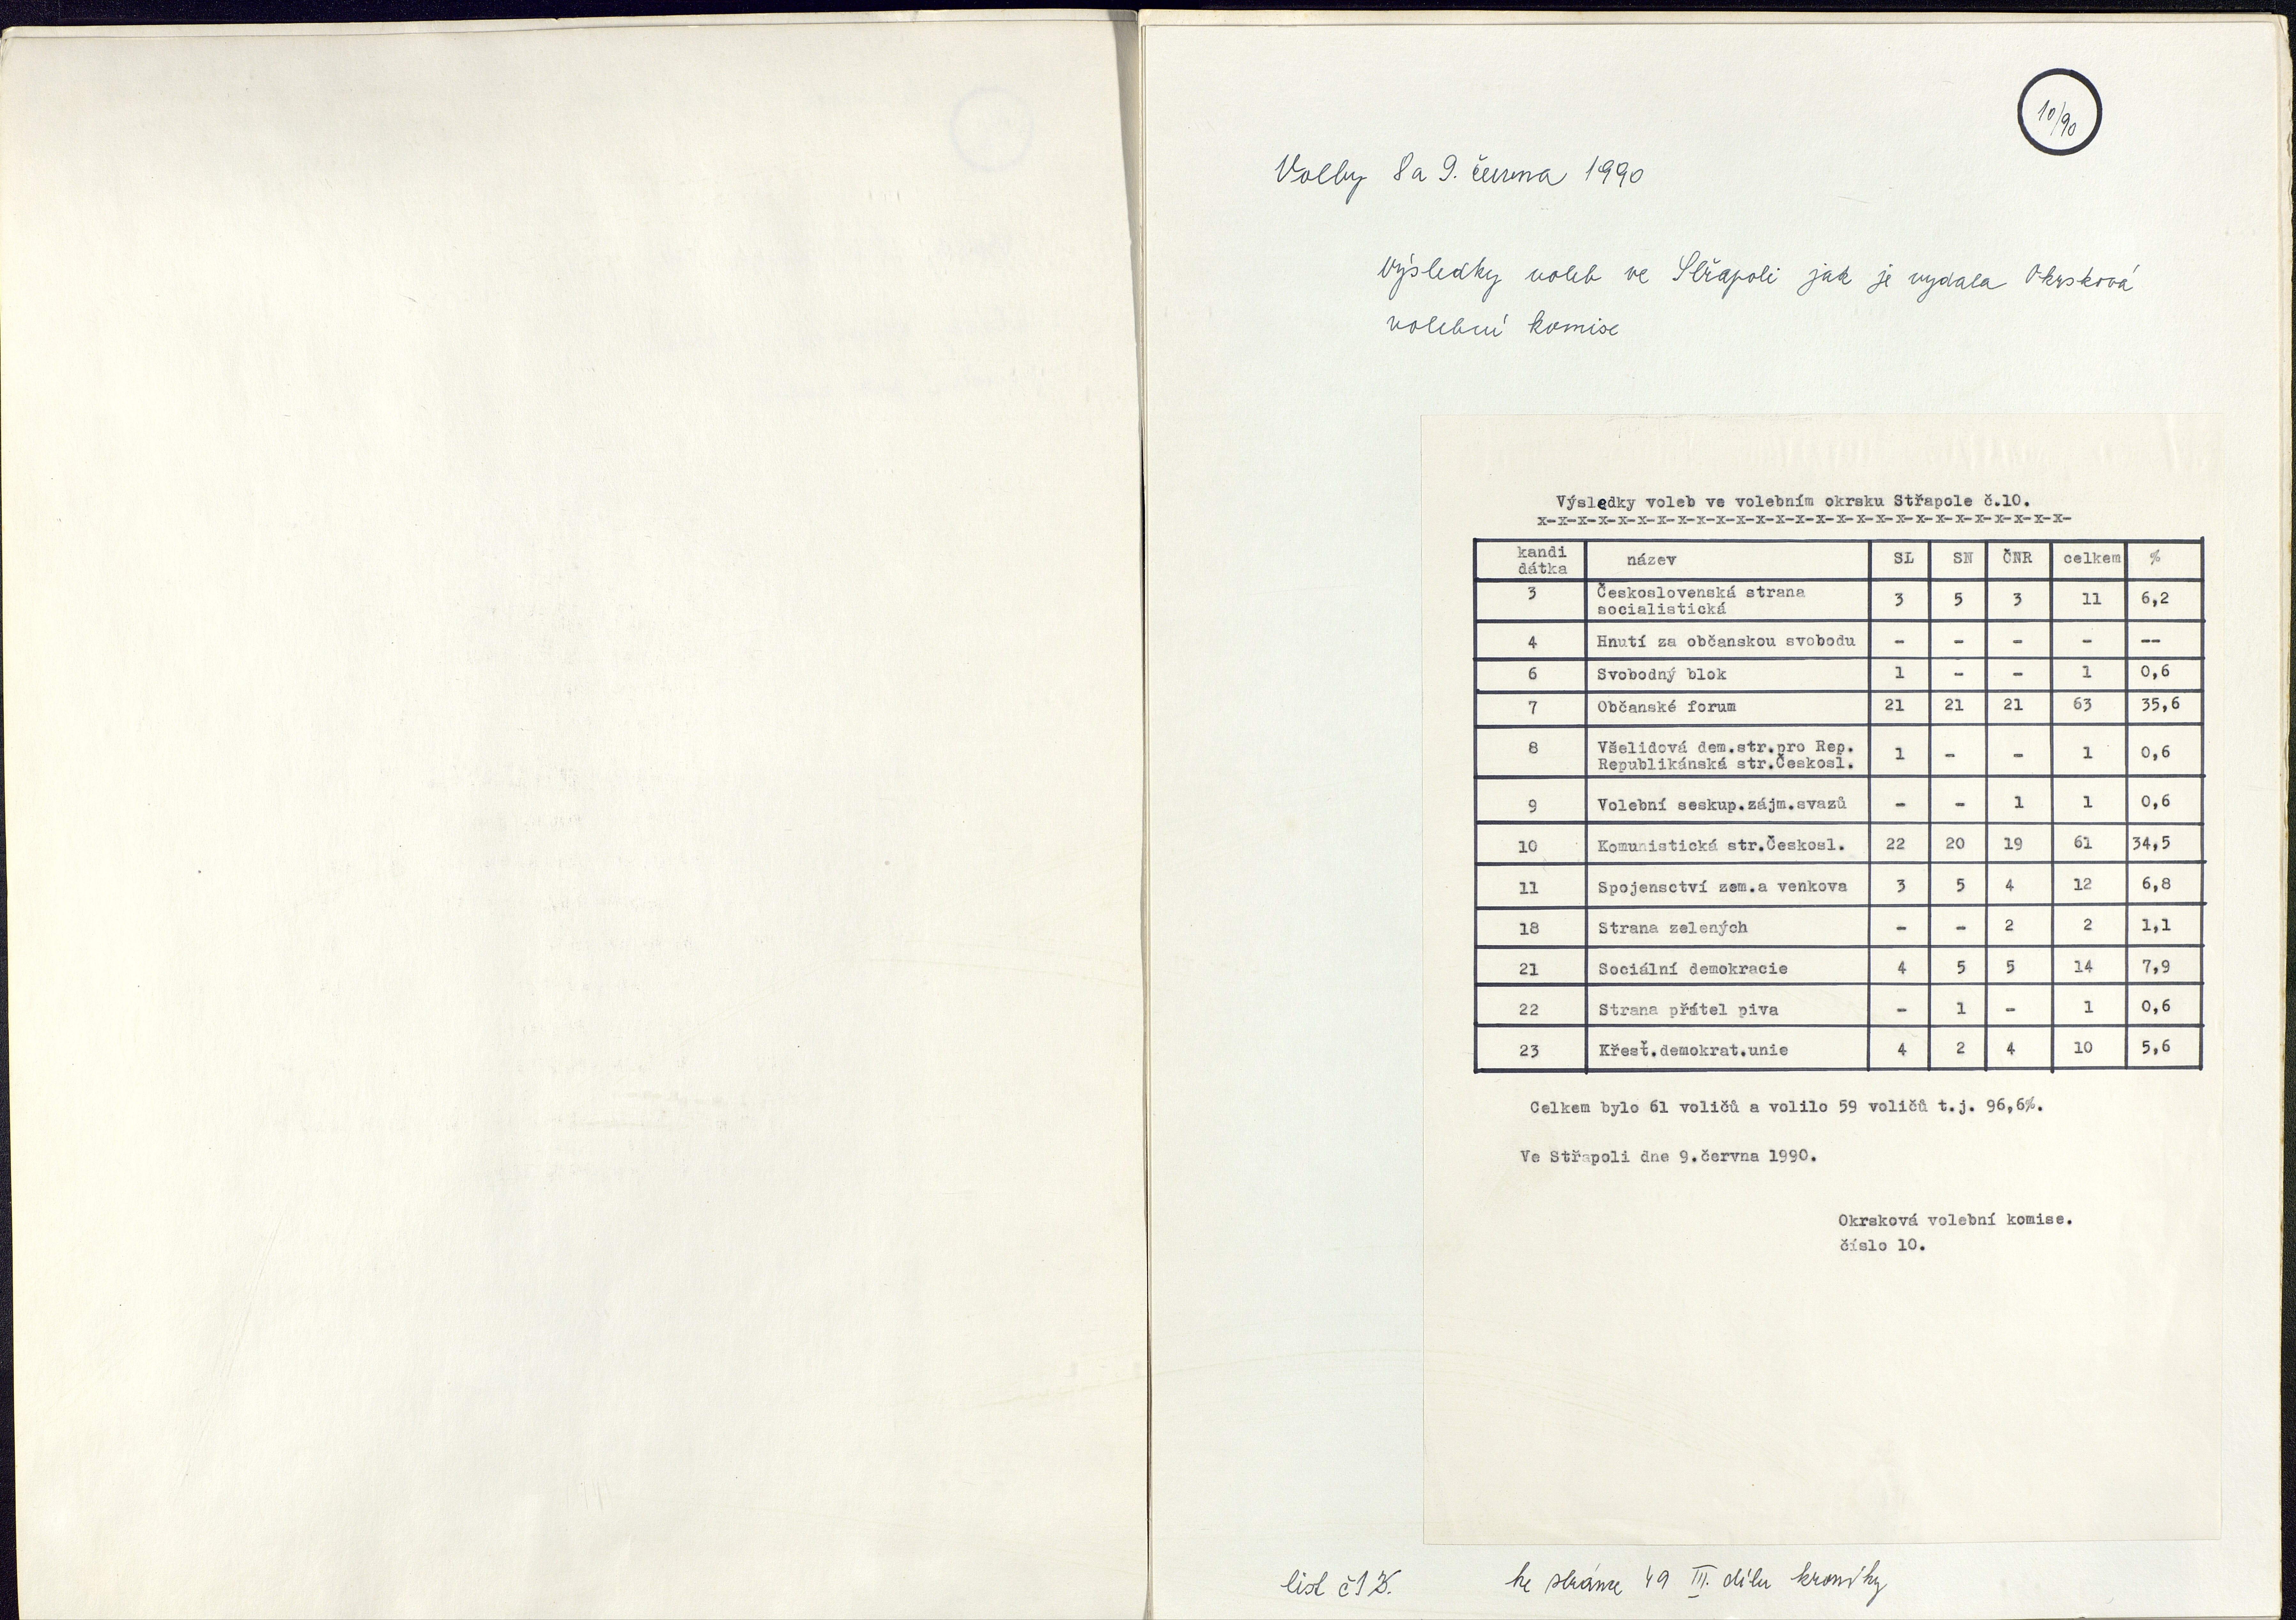 10/90
Volby 8 a 9. června 1990
Výsledky voleb ve Střapoli jak je vydala Okrsková
volební komise
Výsledky voleb ve volebním okrsku Střapole č.10.
x-x-x-x-x-x-x-x-x-x-x-x-x-x-x-x-x-x-x-x-x-x-x-x-x-x-x-
kandi dátka název SL SN ČNR celkem %
3 Československá strana socialistická 3 5 3 11 6,2
4 Hnutí za občanskou svobodu - - - - --
6 Svobodný blok 1 - - 1 0,6
7 Občanské forum 21 21 21 63 35,6
8 Všelidová dem.str.pro Rep. Republikánská str.Českosl. 1 - - 1 0,6
9 Volební seskup.zájm.svazů - - 1 1 0,6
10 Komunistická str.Českosl. 22 20 19 61 34,5
11 Spojensctví zem.a venkova 3 5 4 12 6,8
18 Strana zelených - - 2 2 1,1
21 Sociální demokracie 4 5 5 14 7,9
22 Strana přátel piva - 1 - 1 0,6
23 Křesť.demokrat.unie 4 2 4 10 5,6
Celkem bylo 61 voličů a volilo 59 voličů t.j. 96,6%.
Ve Střapoli dne 9.června 1990.
Okrsková volební komise.
číslo 10.
list č
ke stránce 49 III. dílu kroniky